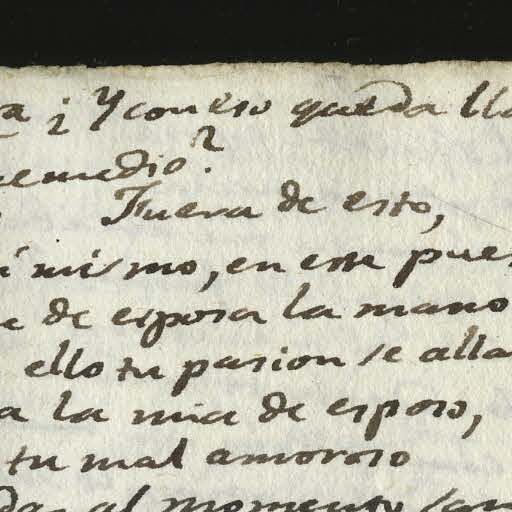 ¿Y con eso queda
remedio?
Fuera de esto,
mismo, en este pues
de esposa la mano
ello tu pasion se alla
a la mia de esposo,
tu mal amoroso
al momento